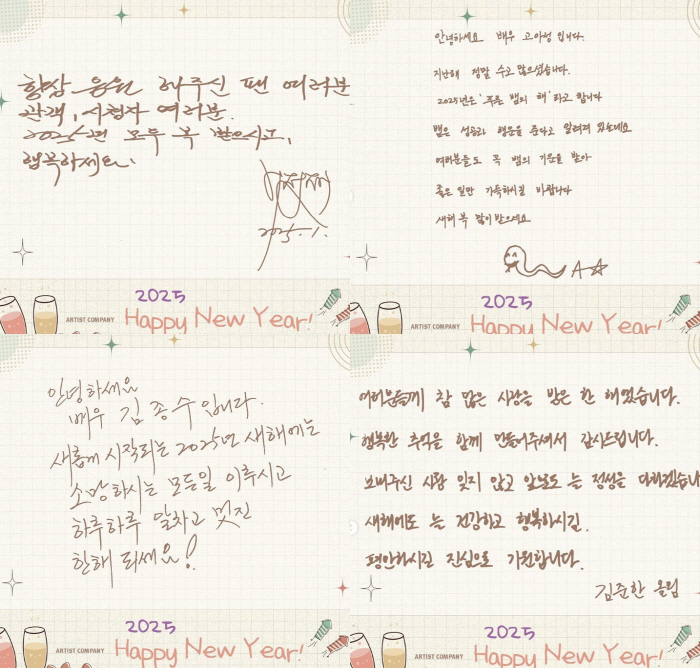 항상 응원 해주신 팬 여러분
관객, 시청자 여러분.
2025년 모두 복 받으시고,
행복하세요.
2025. 1.
2025
ARTIST COMPANY
Happy New Year!
안녕하세요 배우 고아성 입니다.
지난해 정말 수고 많으셨습니다.
2025년은 '푸른 뱀의 해' 라고 합니다
뱀은 성공과 행운을 준다고 알려져 있는데요
여러분들도 꼭 뱀의 기운을 받아
좋은 일만 가득하시길 바랍니다
새해 복 많이 받으세요
2025
ARTIST COMPANY
Happy New Year!
안녕하세요
배우 김종수 입니다.
새롭게 시작되는 2025년 새해에는
소망하시는 모든일 이루시고
하루하루 알차고 멋진
한해 되세요!
2025
ARTIST COMPANY
Happy New Year!
여러분들께 참 많은 사랑을 받은 한 해였습니다.
행복한 추억을 함께 만들어주셔서 감사드립니다.
보내주신 사랑 잊지 않고 앞날도 늘 정성을 다하겠습니
새해에도 늘 건강하고 행복하시길.
평안하시길 진심으로 기원합니다.
김준한 올림
2025
ARTIST COMPANY
Happy New Year!